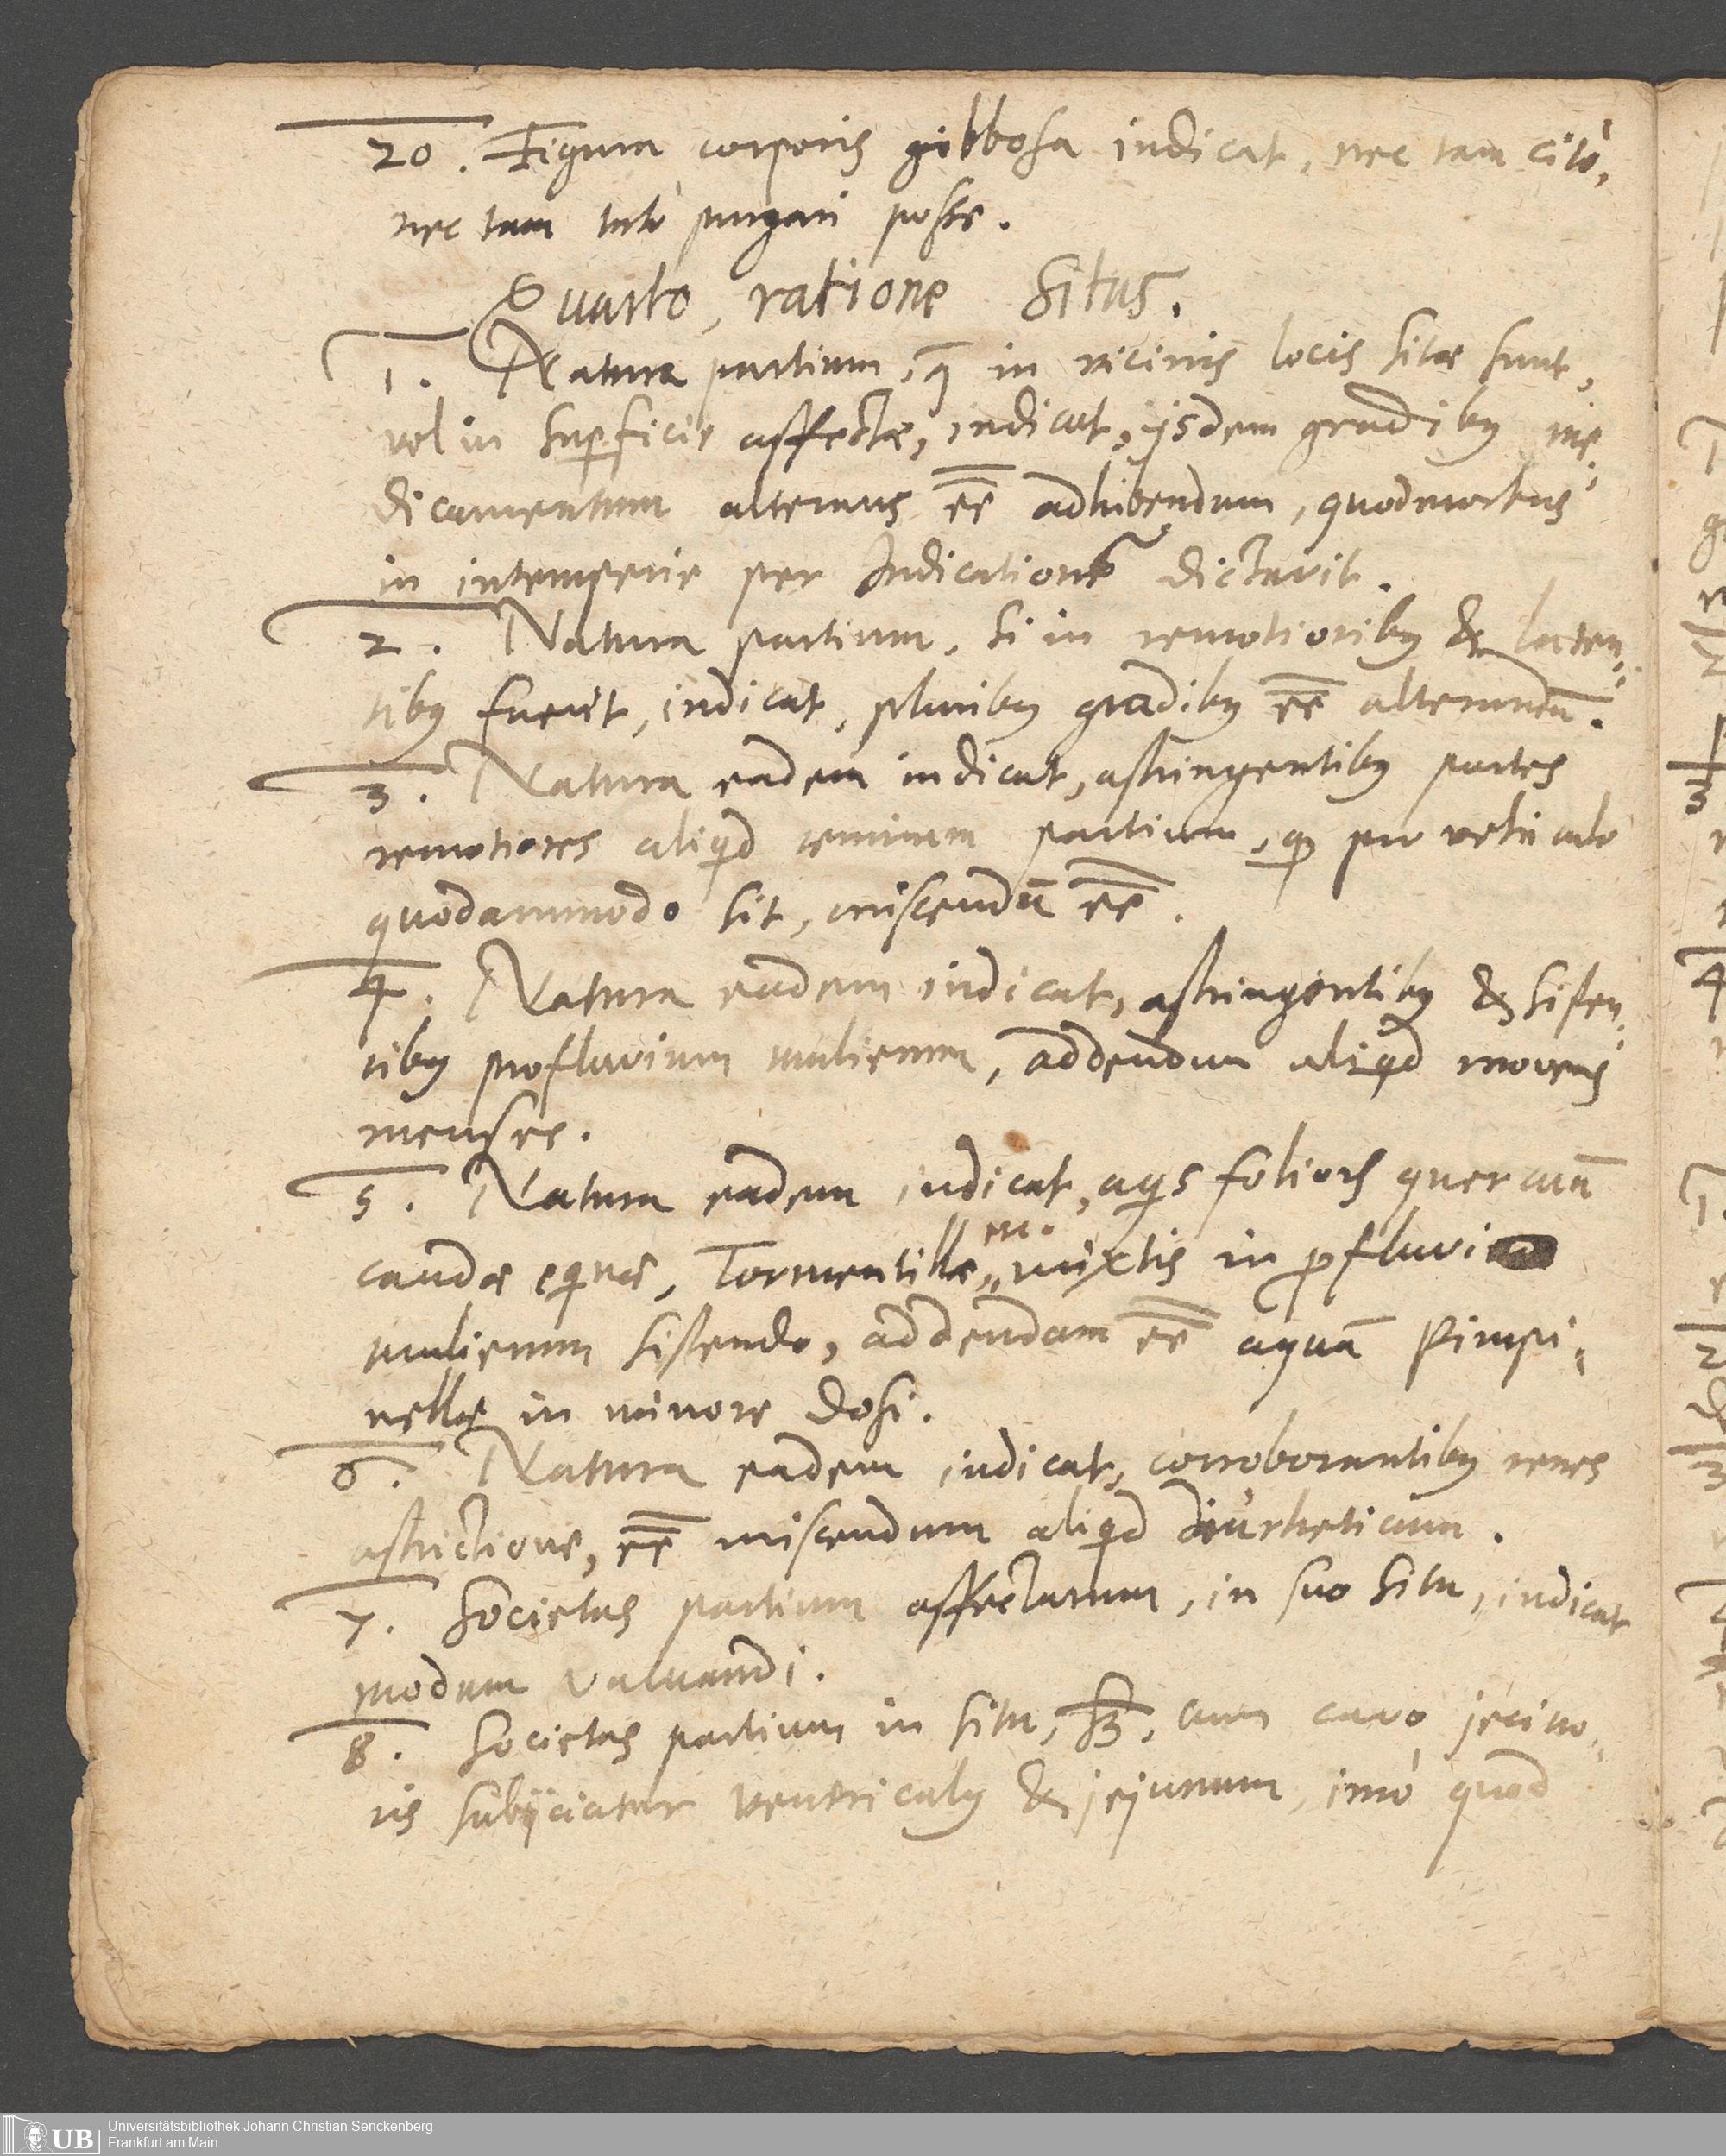 20. Figura corporis gibbosa indicat, nec tam citò,
nec tam tutò purgari posse.
Quarto, ratione Situs.
1. Natura partium, q̄ in vicinis locis sitæ sunt,
vel in superficie affectæ, indicat, ijsdem gradibꝫ me-
dicamentum alterans ēē adhibendum, quod morbus
in intemperie per Indicationē dictavit.
2. Natura partium, si in remotioribꝫ & laten-
tibꝫ fuerit, indicat, pluribꝫ gradibꝫ ēē alterandū.
3. Natura eadem indicat, astringentibꝫ partes
remotiores aliqd tenuium partium, qd pro vehiculo
quodammodo sit, miscendū ēē.
4. Natura eadem indicat, astringentibꝫ & sisten-
tibꝫ profluvium muliebrem, addendum aliqd movens
menses.
5. Natura eadem indicat, aqis foliorū quercūs
caudæ eqinæ, Tormentillæ mixtis in ꝓfluvio
muliebrem sistendo, addendam ēē aquā Pimpi-
nellæ in minore dosi.
6. Natura eadem indicat, corroborantibꝫ renes
astrictione, ēē miscendum aliqd diurheticum.
7. Societas partium affectarum, in suo situ, indicat
modum evacuandi.
8. Societas partium in situ, cum cavo jecino-
ris subijciatur ventriculꝫ & jejunum, imò quod
Universitätsbibliothek Johann Christian Senckenberg
Frankfurt am Main
UB